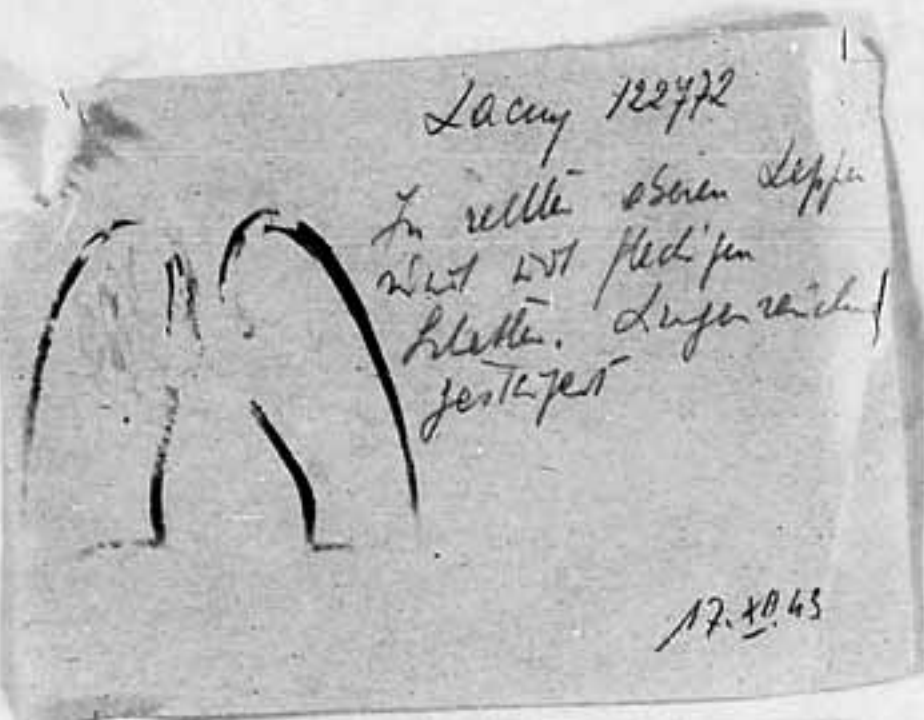 Lacny 122772
In rechten oberen Lappen
sind
fleckigen
Schatten. Lungenzeichn
gesteigert
17.XII.43